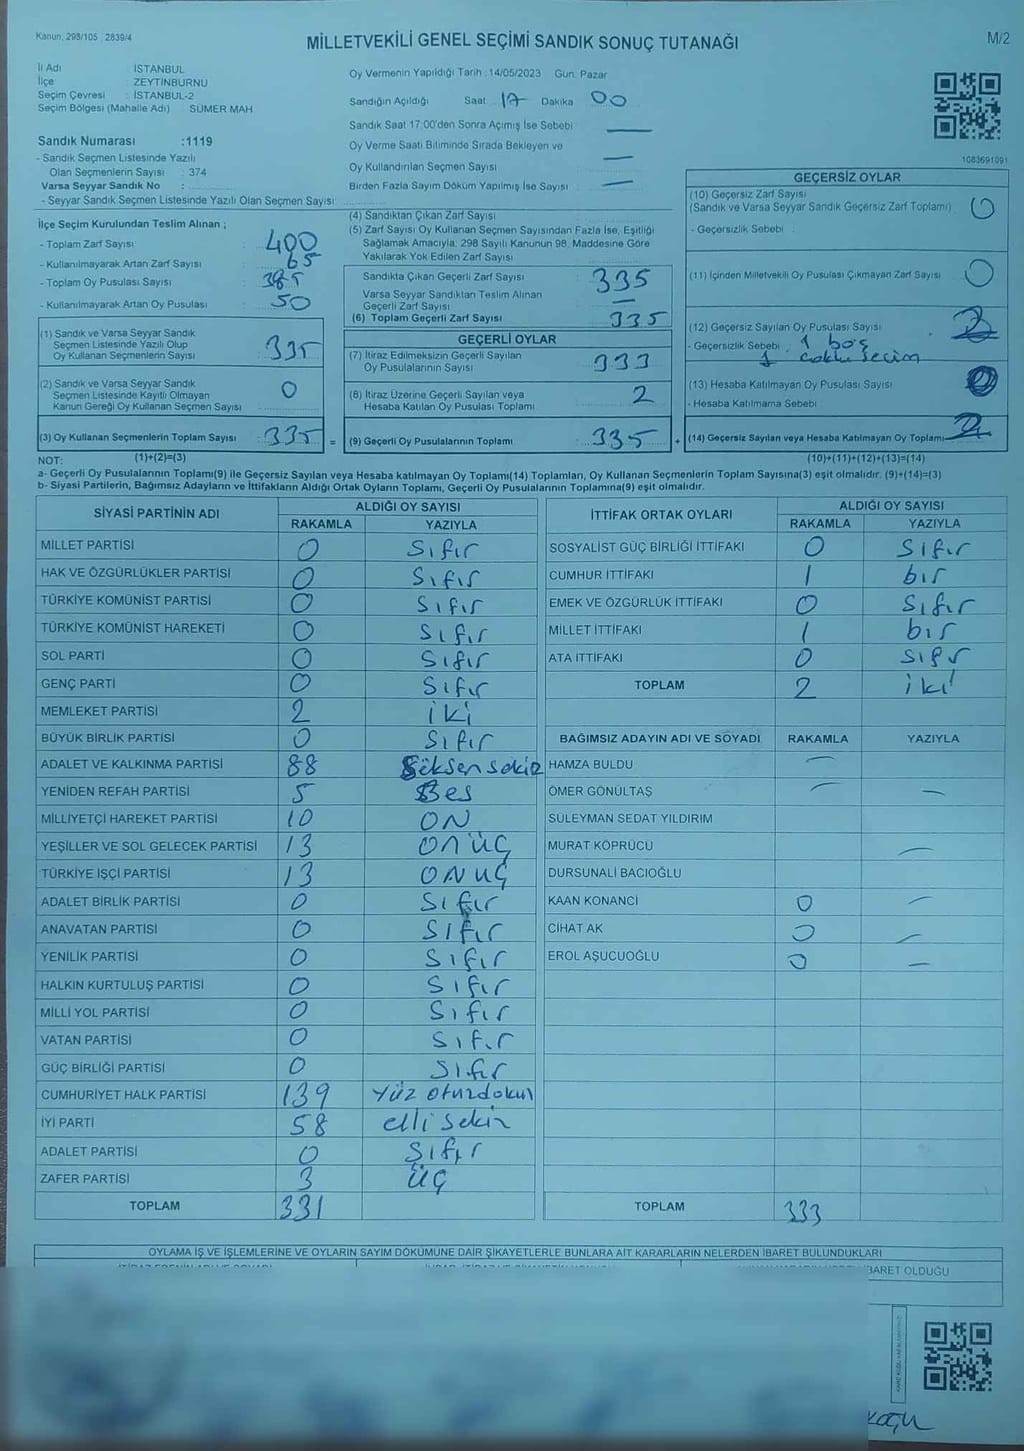 Kanun, 298/105 , 2839/4
MİLLETVEKİLİ GENEL SEÇİMİ SANDIK SONUÇ TUTANAĞI
M/2
İl Adı : İSTANBUL
İlçe : ZEYTİNBURNU
Seçim Çevresi : İSTANBUL-2
Seçim Bölgesi (Mahalle Adı) : SÜMER MAH
Sandık Numarası :1119
- Sandık Seçmen Listesinde Yazılı
Olan Seçmenlerin Sayısı : 374
Varsa Seyyar Sandık No :
- Seyyar Sandık Seçmen Listesinde Yazılı Olan Seçmen Sayısı
Oy Vermenin Yapıldığı Tarih : 14/05/2023 Gün: Pazar
Sandığın Açıldığı Saat 17 Dakika 00
Sandık Saat 17:00'den Sonra Açımış İse Sebebi
Oy Verme Saati Bitiminde Sırada Bekleyen ve
Oy Kullandırılan Seçmen Sayısı
Birden Fazla Sayım Döküm Yapılmış İse Sayısı
1083691091
İlçe Seçim Kurulundan Teslim Alınan ;
- Toplam Zarf Sayısı : 400
- Kullanılmayarak Artan Zarf Sayısı : 65
- Toplam Oy Pusulası Sayısı : 385
- Kullanılmayarak Artan Oy Pusulası : 50
(1) Sandık ve Varsa Seyyar Sandık
Seçmen Listesinde Yazılı Olup
Oy Kullanan Seçmenlerin Sayısı : 335
(2) Sandık ve Varsa Seyyar Sandık
Seçmen Listesinde Kayıtlı Olmayan
Kanun Gereği Oy Kullanan Seçmen Sayısı 0
(3) Oy Kullanan Seçmenlerin Toplam Sayısı : 335 =
(4) Sandıktan Çıkan Zarf Sayısı
(5) Zarf Sayısı Oy Kullanan Seçmen Sayısından Fazla İse, Eşitliği
Sağlamak Amacıyla; 298 Sayılı Kanunun 98. Maddesine Göre
Yakılarak Yok Edilen Zarf Sayısı
Sandıkta Çıkan Geçerli Zarf Sayısı 335
Varsa Seyyar Sandıktan Teslim Alınan
Geçerli Zarf Sayısı
(6) Toplam Geçerli Zarf Sayısı 335
GEÇERLİ OYLAR
(7) İtiraz Edilmeksizin Geçerli Sayılan
Oy Pusulalarının Sayısı 333
(8) İtiraz Üzerine Geçerli Sayılan veya
Hesaba Katılan Oy Pusulası Toplamı 2
(9) Geçerli Oy Pusulalarının Toplamı 335 +
GEÇERSİZ OYLAR
(10) Geçersiz Zarf Sayısı
(Sandık ve Varsa Seyyar Sandık Geçersiz Zarf Toplamı) 0
- Geçersizlik Sebebi :
(11) İçinden Milletvekili Oy Pusulası Çıkmayan Zarf Sayısı 0
(12) Geçersiz Sayılan Oy Pusulası Sayısı 2
- Geçersizlik Sebebi : 1 boş
1 çoklu seçim
(13) Hesaba Katılmayan Oy Pusulası Sayısı
- Hesaba Katılmama Sebebi
(14) Geçersiz Sayılan veya Hesaba Katılmayan Oy Toplamı 2
NOT: (1)+(2)=(3)
(10)+(11)+(12)+(13)=(14)
a- Geçerli Oy Pusulalarının Toplamı(9) ile Geçersiz Sayılan veya Hesaba katılmayan Oy Toplamı(14) Toplamları, Oy Kullanan Seçmenlerin Toplam Sayısına(3) eşit olmalıdır. (9)+(14)=(3)
b- Siyasi Partilerin, Bağımsız Adayların ve İttifakların Aldığı Ortak Oyların Toplamı, Geçerli Oy Pusulalarının Toplamına(9) eşit olmalıdır.
SİYASİ PARTİNİN ADI ALDIĞI OY SAYISI
RAKAMLA YAZIYLA
MİLLET PARTİSİ 0 Sıfır
HAK VE ÖZGÜRLÜKLER PARTİSİ 0 Sıfır
TÜRKİYE KOMÜNİST PARTİSİ 0 Sıfır
TÜRKİYE KOMÜNİST HAREKETİ 0 Sıfır
SOL PARTİ 0 Sıfır
GENÇ PARTİ 0 Sıfır
MEMLEKET PARTİSİ 2 iki
BÜYÜK BİRLİK PARTİSİ 0 Sıfır
ADALET VE KALKINMA PARTİSİ 88 Seksen sekiz
YENİDEN REFAH PARTİSİ 5 Bes
MİLLİYETÇİ HAREKET PARTİSİ 10 ON
YEŞİLLER VE SOL GELECEK PARTİSİ 13 ON ÜÇ
TÜRKİYE İŞÇİ PARTİSİ 13 ON UÇ
ADALET BİRLİK PARTİSİ 0 Sıfır
ANAVATAN PARTİSİ 0 Sıfır
YENİLİK PARTİSİ 0 Sıfır
HALKIN KURTULUŞ PARTİSİ 0 Sıfır
MİLLİ YOL PARTİSİ 0 Sıfır
VATAN PARTİSİ 0 Sıfır
GÜÇ BİRLİĞİ PARTİSİ 0 Sıfır
CUMHURİYET HALK PARTİSİ 139 Yüz otuzdokuz
İYİ PARTİ 58 elli sekiz
ADALET PARTİSİ 0 Sıfır
ZAFER PARTİSİ 3 ÜÇ
TOPLAM 331
İTTİFAK ORTAK OYLARI ALDIĞI OY SAYISI
RAKAMLA YAZIYLA
SOSYALİST GÜÇ BİRLİĞİ İTTİFAKI 0 Sıfır
CUMHUR İTTİFAKI 1 bir
EMEK VE ÖZGÜRLÜK İTTİFAKI 0 Sıfır
MİLLET İTTİFAKI 1 bir
ATA İTTİFAKI 0 Sıfr
TOPLAM 2 iki
BAĞIMSIZ ADAYIN ADI VE SOYADI RAKAMLA YAZIYLA
HAMZA BULDU
ÖMER GÖNÜLTAŞ
SÜLEYMAN SEDAT YILDIRIM
MURAT KÖPRÜCÜ
DURSUNALİ BACIOĞLU
KAAN KONANCİ 0
CİHAT AK 0
EROL AŞUCUOĞLU 0
TOPLAM 333
OYLAMA İŞ VE İŞLEMLERİNE VE OYLARIN SAYIM DÖKÜMÜNE DAİR ŞİKAYETLERLE BUNLARA AİT KARARLARIN NELERDEN İBARET BULUNDUKLARI
BARET OLDUĞU